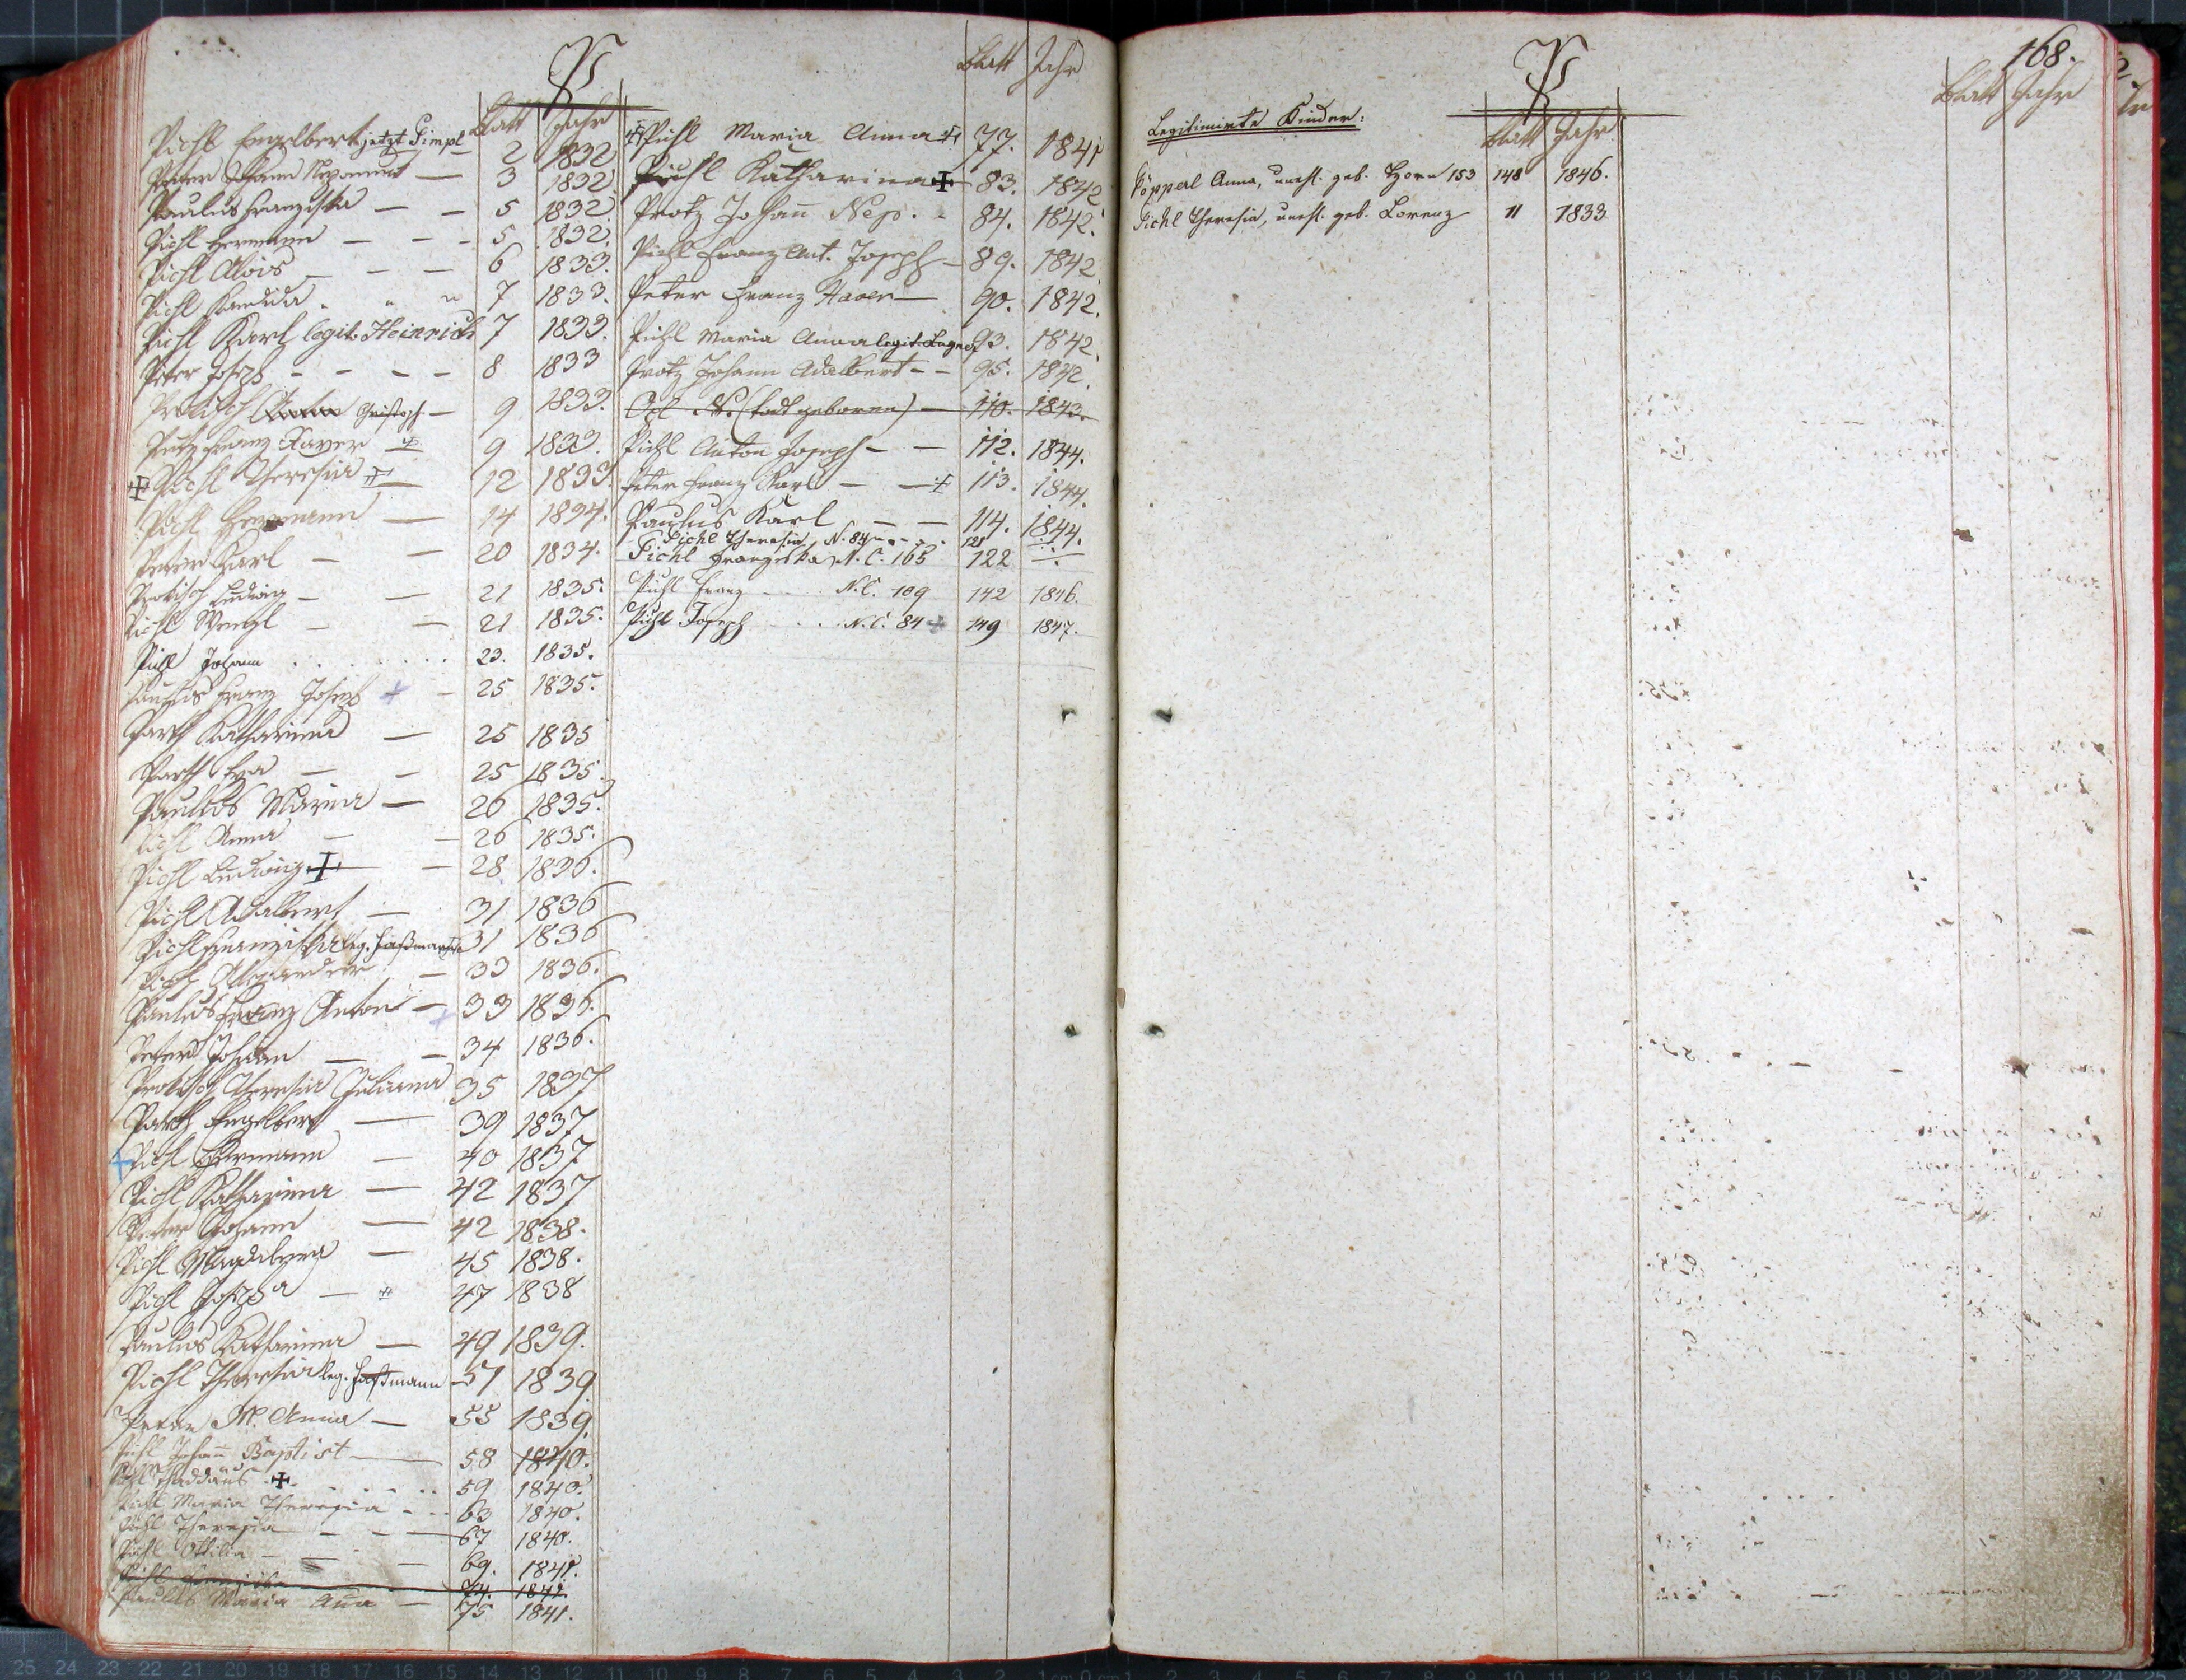 P
Blatt Jahr
Pichl Engelbert jetzt Gimpl 2 1832
Peter Johann Nepomuk — 3 1832
Paulus Franziska — — 5 1832
Pichl Hermann — — — 5 1832.
Pichl Alois — — — 6 1833.
Pichl 7 1833.
Pichl Karl legit. Heinrich 7 1833.
Peter Joseph — — — — 8 1833
Protisch Anton Christoph — 9 1833.
Franz Xaver 9 1833.
Pichl Theresia 12 1833.
Pichl Hermann — 14 1834.
Peter Karl — — 20 1834.
Protisch Ludwig — — 21 1835.
Pichl Wenzl — — 21 1835.
Pichl Johann . . . . . . . 23. 1835.
Paulus Franz Joseph + — 25 1835.
Parth Katharina — 25 1835
Parth Eva — — 25 1835.
Paulus Maria — 26 1835.
Pichl Anna — — 26 1835.
Pichl Ludwig + — 28 1836.
Pichl Adalbert — 31 1836
Pichl Franziska leg. 31 1836
Pichl Alexander — 33 1836.
Paulus Franz Anton — 33 1836.
Peter Johann — — 34 1836.
Protisch Theresia Juliana 35 1837
Parth Engelbert — 39 1837
+ Pichl Hermann — 40 1837
Pichl Katharina — 42 1837
Peter Johann — 42 1838.
Pichl Magdalena — 45 1838.
Pichl Josepha — 47 1838
Paulus Katharina — 49 1839.
Pichl Theresia leg. Haßmann 51 1839
Peter M. Anna — 55 1839.
Pichl Johann̄ Baptist — 58 1840.
Pichl Thaddäus + . . . . 59 1840.
Pichl Maria Theresia - . . 63 1840.
Pichl Theresia — — — 67 1840.
Pichl Ottilia — — — 69. 1841.
Pichl Franziska 74. 1841.
Paulus Maria Ana — 75 1841.
Blatt Jahr
Pichl Maria Anna 77. 1841
Pichl Katharina + 83. 1842
Protz Johan̄ Nep. - 84. 1842.
Pichl Franz Ant. Joseph — 89. 1842
Peter Franz Xaver — 90. 1842.
Pichl Maria Anna legit. 93. 1842.
Protz Johann Adalbert — — 95. 1842.
N. (todt geboren) — 110. 1843.
Pichl Anton Joseph — — 112. 1844.
Peter Franz Karl — — 113. 1844.
Paulus Karl — — 114. 1844.
Pichl Theresia N. 84 — . . . 121
Pichl Franziska N. C. 165 122
Pichl Franz . . . . N. C. 109 142 1846.
Pichl Joseph . . . N. C. 84 + 149 1847.
P
168.
Blatt Jahr
Legitimirte Kinder:
Blatt Jahr
Pöpperl Anna, unehl. geb. Horn 153 148 1846.
Pichl Theresia, unehl. geb. Lorenz 11 1833